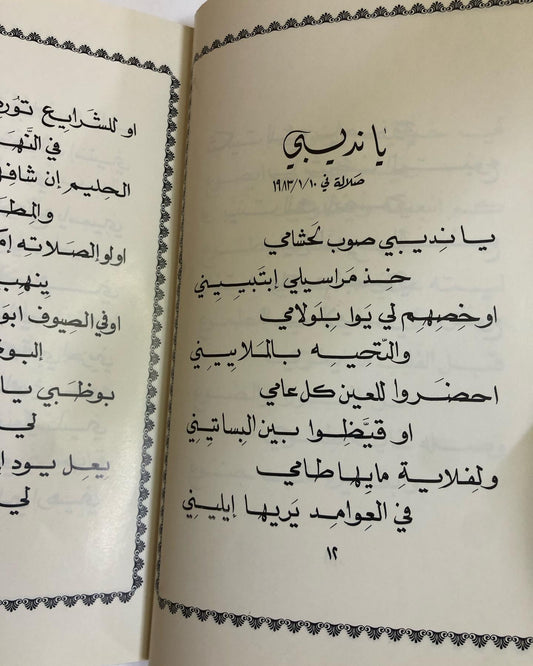 يا نديبي
صلالة في ١٩٨٣/١/١٠
يا نديبي صوب لحشامي
خذ مراسيلي إبتبييني
او خصهم لي يوا بلولامي
والتحيه بالملاييني
احضروا للعين كل عامي
او قيظوا بين البساتيني
ولفلاية مايها طامي
في العوامد يريها إيليني
١٢
او للشرايع تورد
في النها
الحليم إن شافه
والمطا
اولو الصلاته إم
ينهب
اوفي الصيوف ابو
البوظ
بوظبي يا
لي
يعل يود ا
لي